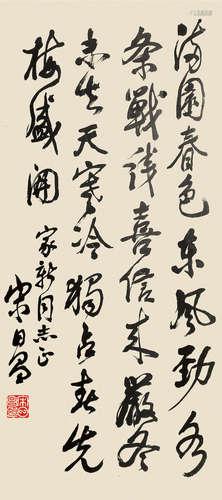 满园春色东风劲各
条战线喜信来严冬
未尽天寒冷独占春先
梅盛开
家新同志正
宋日昌